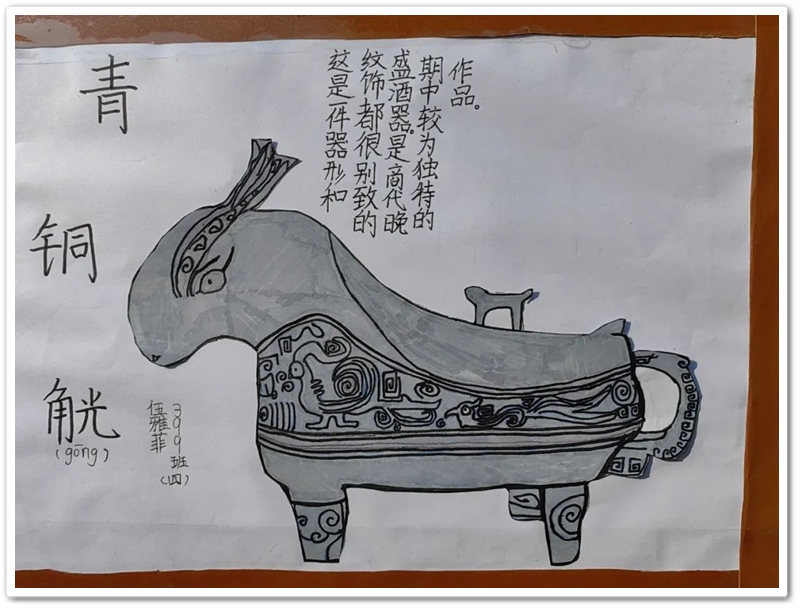 青铜觥
(gōng)
这是一件器形和
纹饰都很别致的
盛酒器。是商代晚
期中较为独特的
作品。
伍雅菲
399班(四)